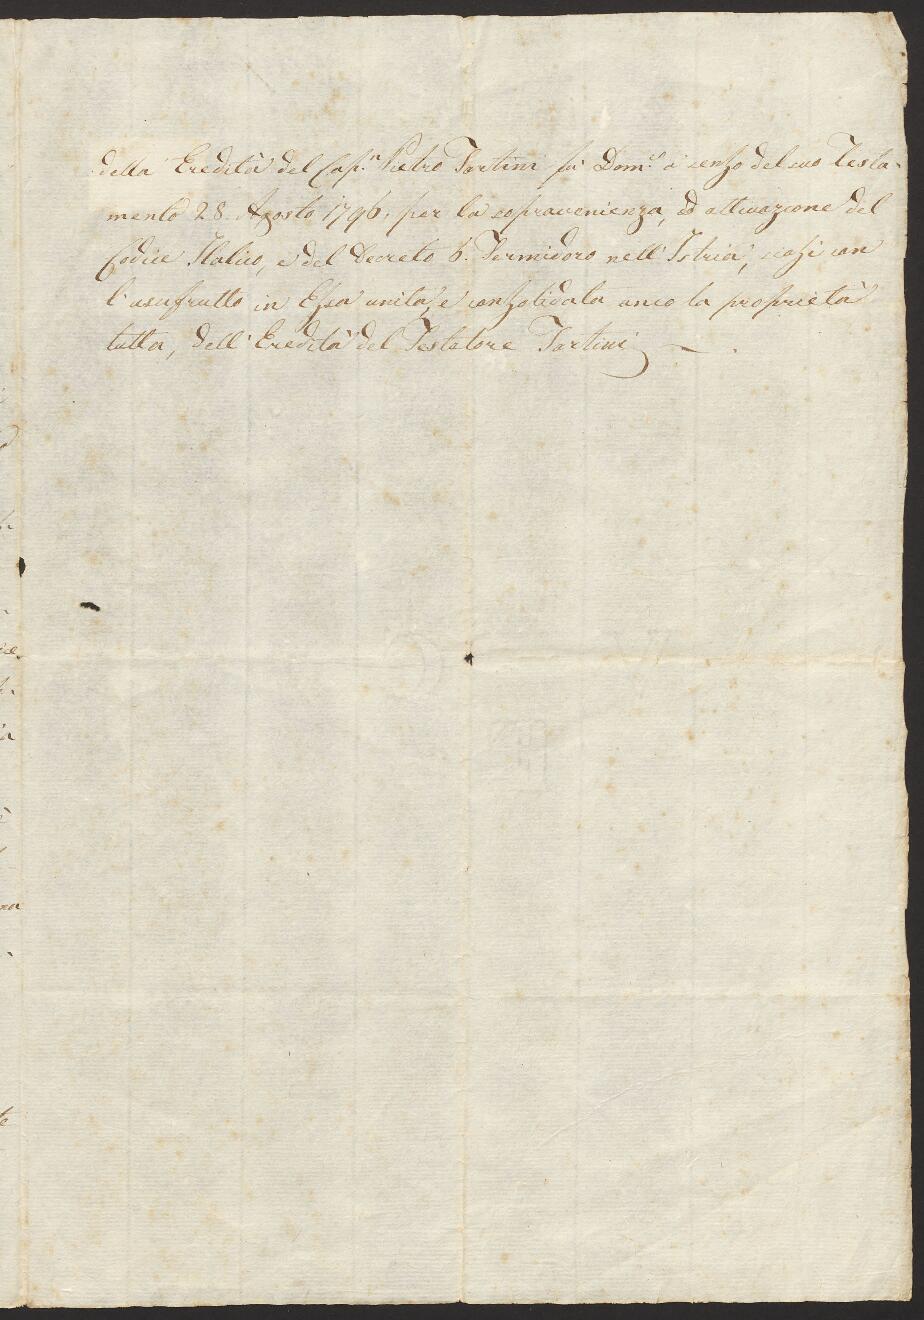 della Eredità del Cap.n Pietro Tartini fù Dom.co a senso del suo Testa-
mento 28. Agosto 1796, per la sopravenienza, ed attivazione del
Codice Italico, e del Decreto 6. Termidoro nell'Istria, siasi con
l'usufrutto in Essa unita, e consolidata anco la proprietà
tutta, dell'Eredità del Testatore Tartini